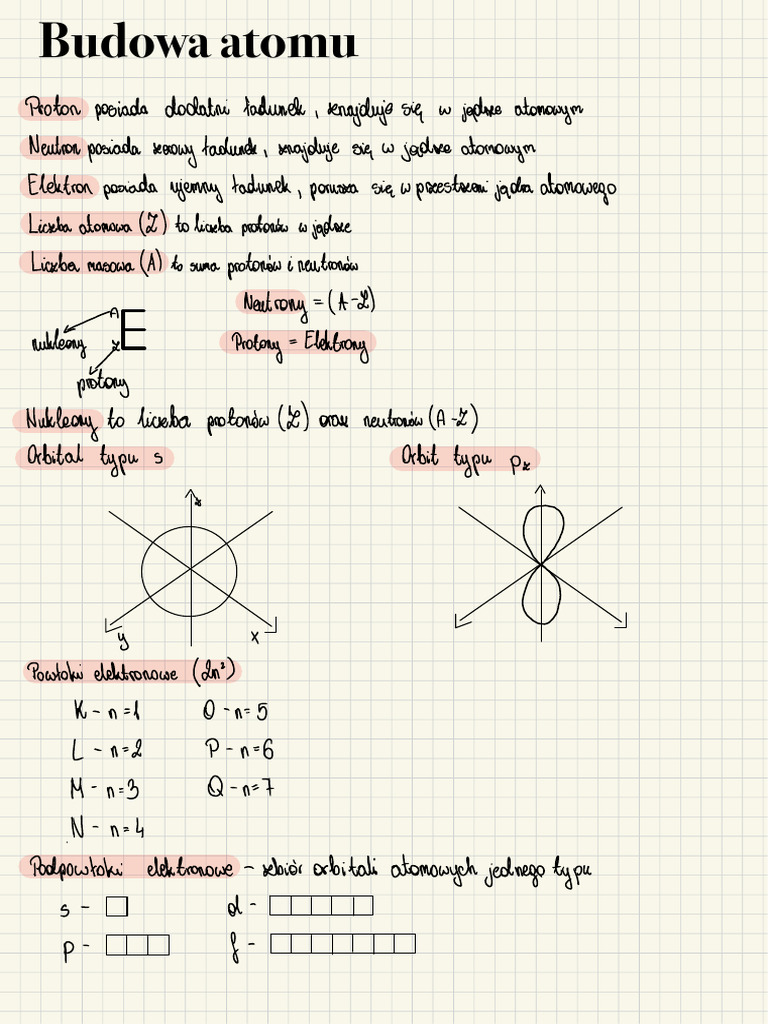 Budowa atomu
Proton posiada dodatni ładunek, znajduje się w jądrze atomowym
Neutron posiada zerowy ładunek, znajduje się w jądrze atomowym
Elektron posiada ujemny ładunek, porusza się w przestrzeni jądra atomowego
Liczba atomowa (Z) to liczba protonów w jądrze
Liczba masowa (A) to suma protonów i neutronów
Neutrony = (A-Z)
A
E
nukleony
Z
Protony = Elektrony
protony
Nukleony to liczba protonów (Z) oraz neutronów (A-Z)
Orbital typu s
Orbit typu pz
z
y
x
Powłoki elektronowe (2n²)
K - n=1 O - n=5
L - n=2 P - n=6
M - n=3 Q - n=7
N - n=4
Podpowłoki elektronowe - zbiór orbitali atomowych jednego typu
s - d -
p - f -